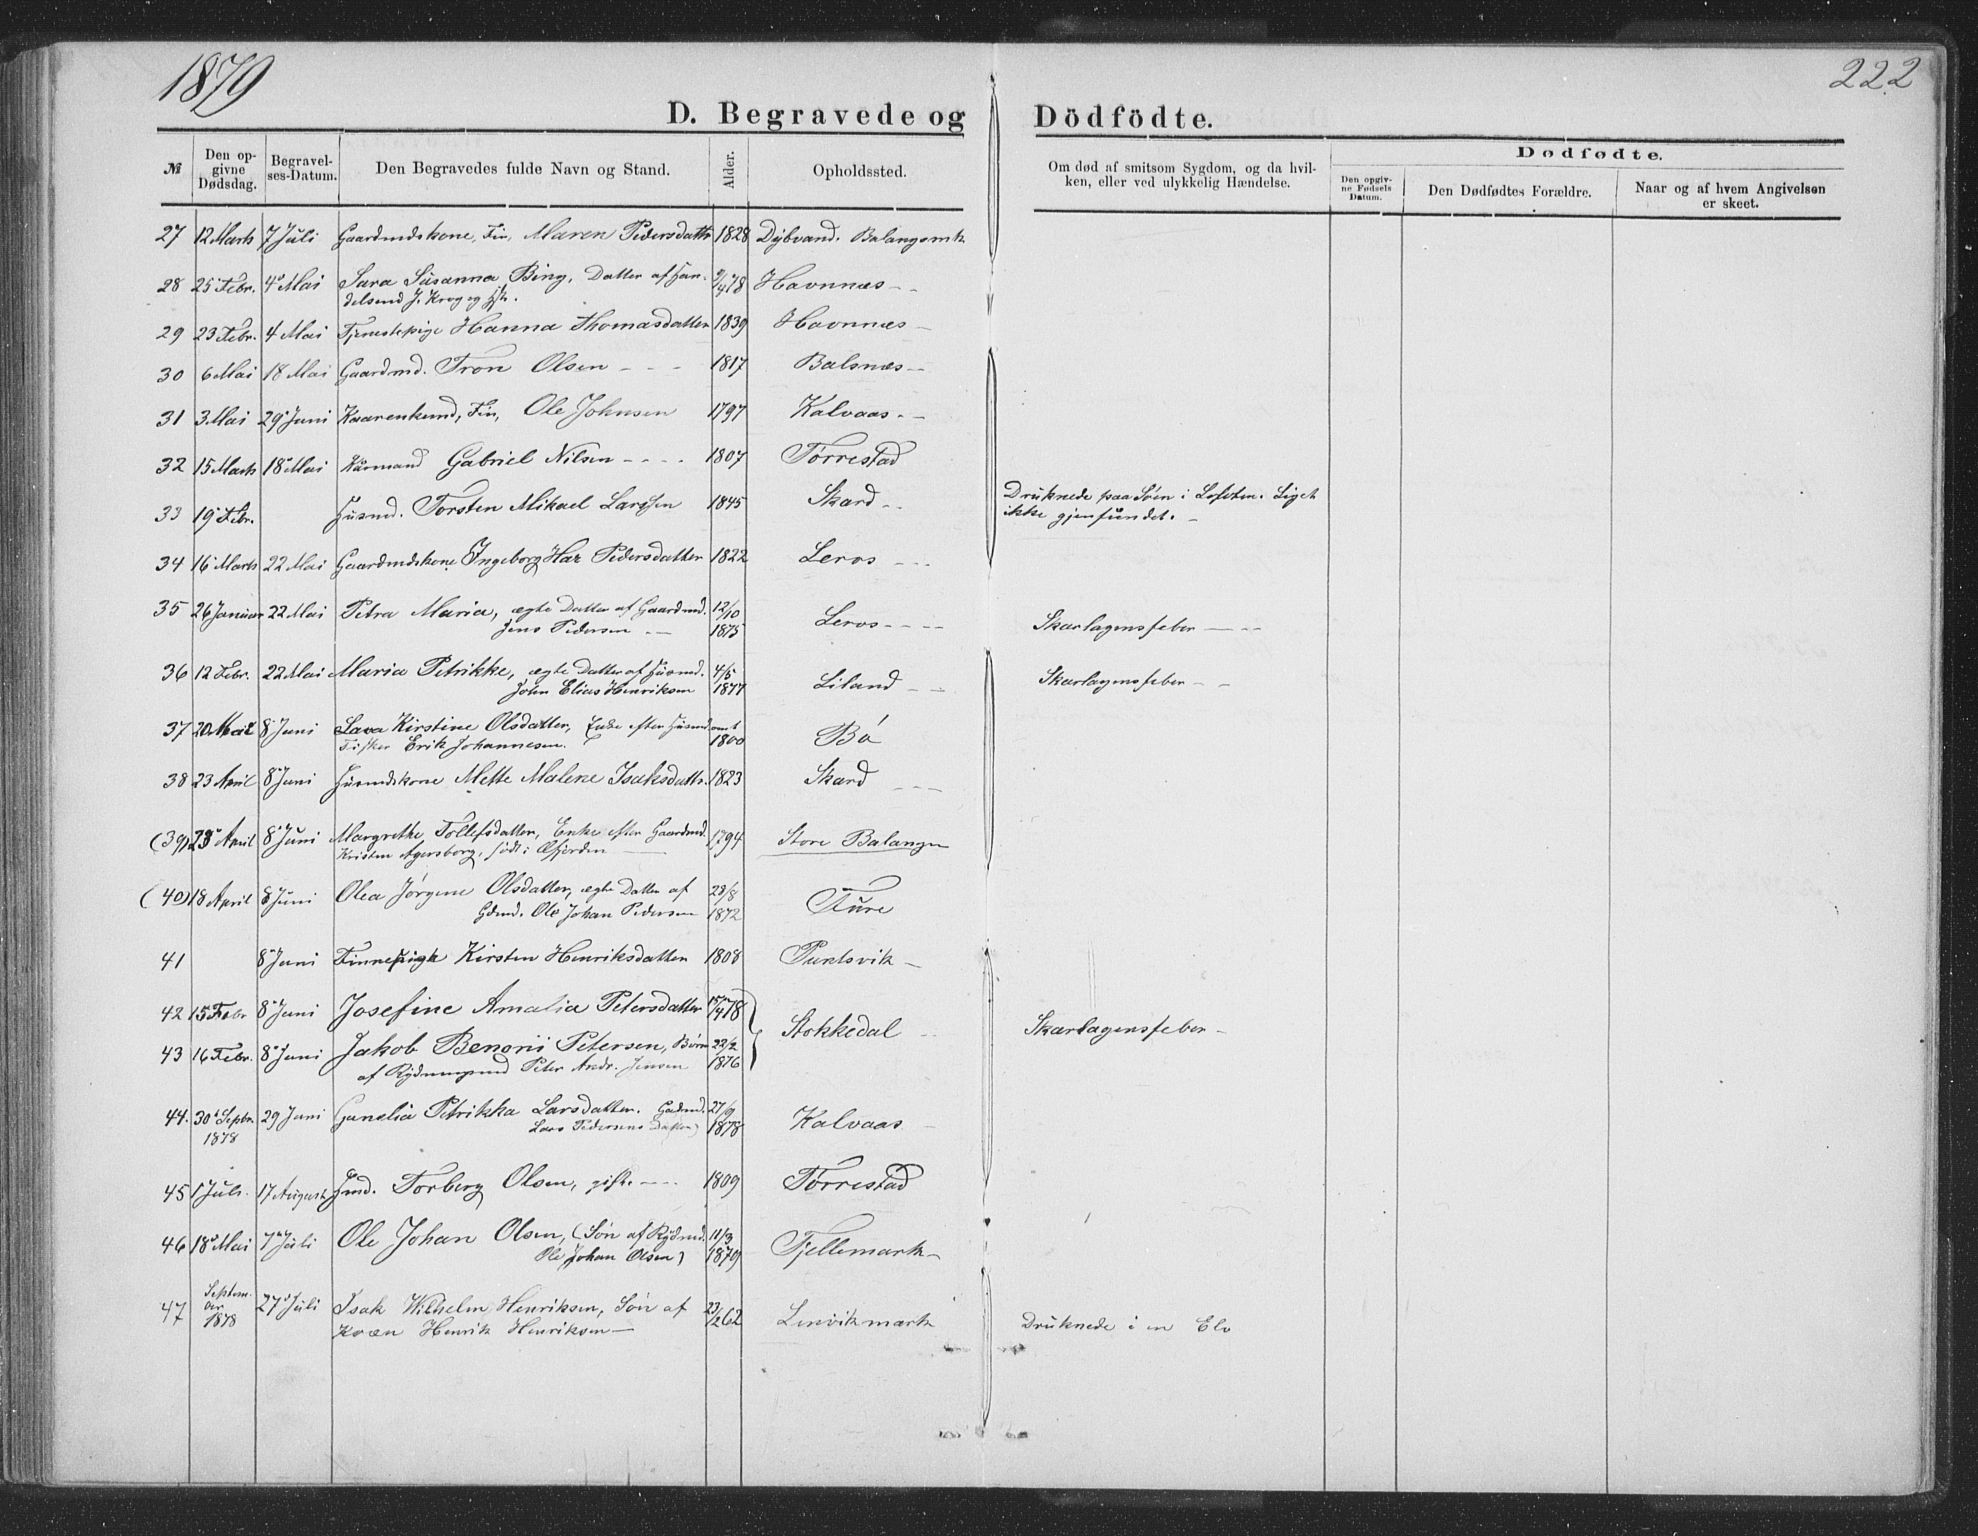 1879
222
D. Begravede og Dödfödte.
№ Den opgivne Dødsdag. Begravelses-Datum. Den Begravedes fulde Navn og Stand. Alder. Opholdssted. Om død af smitsom Sygdom, og da hvilken, eller ved ulykkelig Hændelse.
Dødfødte.
Den opgivne Fødsels Datum. Den Dødfødtes Forældre. Naar og af hvem Angivelsen er skeet.
27 12 Marts 7 Juli Gaardmdskone, Fin, Maren Pedersdattr 1828 Dybvand. Balangsmk
28 25 Febr. 4 Mai Sara Susanna Bing, Datter af Han- 9/4 78 Havnnæs
delsmd J. Krog og Hst.
29 23 Febr. 4 Mai Tjenestepige Hanna Thomasdatter 1839 Havnnæs
30 6 Mai 18 Mai Gaardmd. Tron Olsen 1817 Balsnæs
31 3 Mai 29 Juni Kaarenkmd, Fin, Ole Johnsen 1797 Kalvaas
32 15 Marts 18 Mai Kårmand Gabriel Nilsen 1807 Tørrestad
33 19 Febr. Husmd. Torsten Mikael Larssen 1845 Skard Druknede paa Søen i Lofoten. Liget
ikke gjenfundet.
34 16 Marts 22 Mai Gaardmdskone Ingeborg Har Pedersdatter 1822 Leros
35 26 Januar 22 Mai Petra Maria, ægte Datter af Gaardmd. 12/10
Jens Pedersen 1875 Leros Skarlagensfeber
36 12 Febr. 22 Mai Maria Petrikke, ægte Datter af Husmd. 4/5
John Elias Henriksen 1877 Liland Skarlagensfeber
37 20 Mai 8 Juni Lava Kirstine Olsdatter, Enke efter Husmd omt
Fisker Erik Johannesen. 1800 Bö
38 23 April 8 Juni Husmdskone Mette Malene Isaksdattr. 1823 Skard
(39) 23 April 8 Juni Margrethe Tollefsdatter, Enke efter Gaardmd. 1794 Store Balangen
Kristen Agersborg, født i Æfjorden
(40) 18 April 8 Juni Olea Jørgine Olsdatter, ægte Datter af 28/8
Gdmd. Ole Johan Pedersen 1872 Ture
41 8 Juni Finnepige Kirsten Henriksdatter 1808 Puntsvik
42 15 Febr 8 Juni Josefine Amalia Petersdatter 15/4 78
Stokkedal Skarlagensfeber
43 16 Febr. 8 Juni Jakob Benoni Petersen, Børn 22/2
af Rydningsmd Peter Andr. Jensen 1876
44. 30 Septbr. 29 Juni Gunelia Petrikka Larsdatter. Gadmd. 27/9
1878 Lars Pedersens Datter) 1878 Kalvaas
45 1 Juli. 17 August Hmd. Torberg Olsen, gift. 1809 Tørrestad
46 18 Mai 7 Juli Ole Johan Olsen, (Søn af Rydmd. 11/3
Ole Johan Olsen) 1879 Fjellemark
47 Septem-
ber
1878 27 Juli Isak Wilhelm Henriksen, Søn af 23/2 62 Lenvikmark Druknede i en Elv
Kvæn Henrik Henriksen